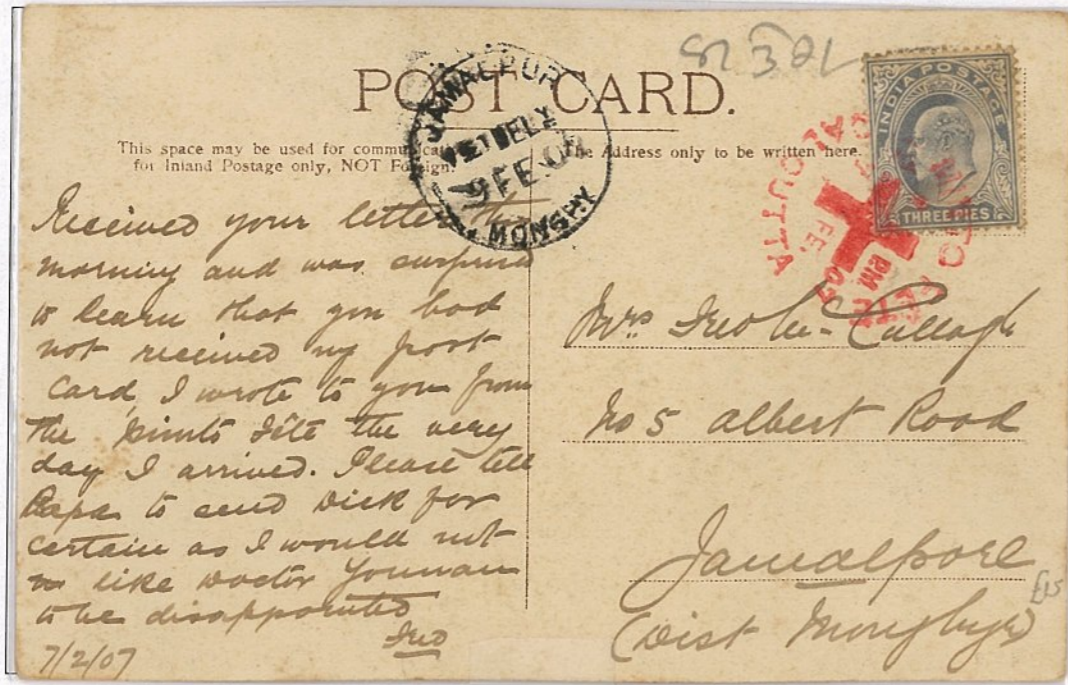 POST CARD.
This space may be used for communication
for Inland Postage only, NOT Foreign.
The Address only to be written here.
INDIA POSTAGE
THREE PIES
JAMALPUR
9 FE 07
MONGHY
CALCUTTA
FE 07
PM
Received your letter this
morning and was surprised
to learn that you had
not received my post
card, I wrote to you from
the Minto Fête the very
day I arrived. Please tell
Papa to send Dick for
certain as I would not
like Doctor
to be disappointed
7/2/07
Mrs
No 5 Albert Road
Jamalpore
(Dist Monghyr)
£15